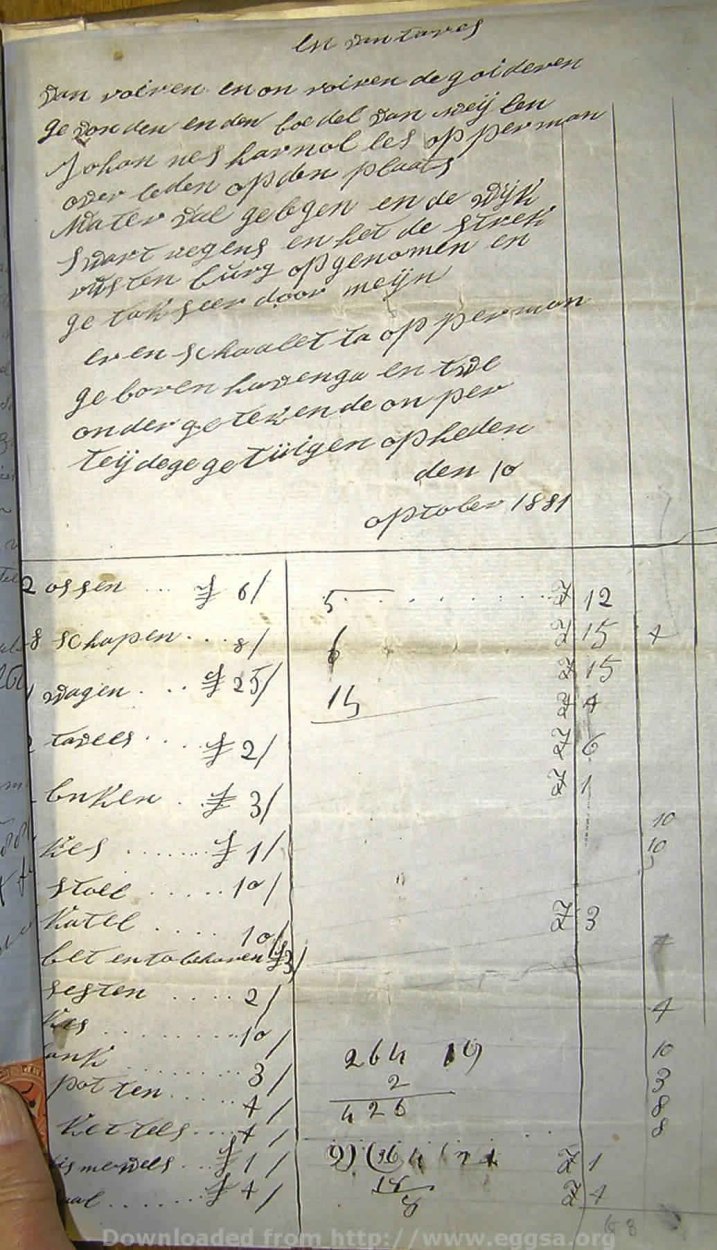 in van tares
van roeren en on roeren de goideren
ge von den en den boe del van weij len
Johan nes harnol les op per man
over leden op den plaats
Mater val gelegen en de wijk
swart regens en het de strek
rus ten burg op genomen en
ge tak seer door meijn
er en schaalet ta op per man
ge boren havenga en twe
onder ge teken de on per
teij dege ge tuigen op heden
den 10
optober 1881
2 ossen ... £ 6/ 5 £ 12
8 schapen ... 8/ 6 £ 15 4
1 wagen ... £ 25/ 15 £ 15
tavels .... £ 2/ £ 4
£ 6
buken .. £ 3/ £ 1
kes ...... £ 1/ 10
stoel ...... 10/ 10
katel .... 10/ £ 3
bet en to behoren £3/
sesten .... 2/ 4
kas ........ 10/
ank ....... 3/ 264 19 10
pot ten ..... 4/ 2 3
426 8
ket tels .... 4/ 8
.. £ 1/ £ 1
...... £ 4/ £ 4
68
Downloaded from http://www.eggsa.org